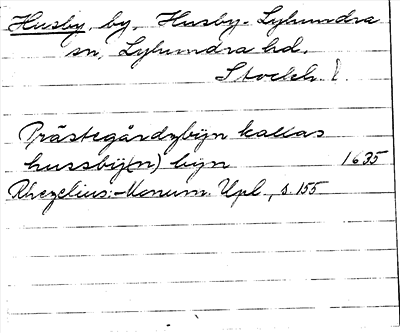 Husby, by, Husby-Lyhundra
sn, Lyhundra hd,
Stockh. l.
Prästegårdzbijn kallas
hussbij(n) bijn 1635
Rhezelius: Monum. Upl., s. 155